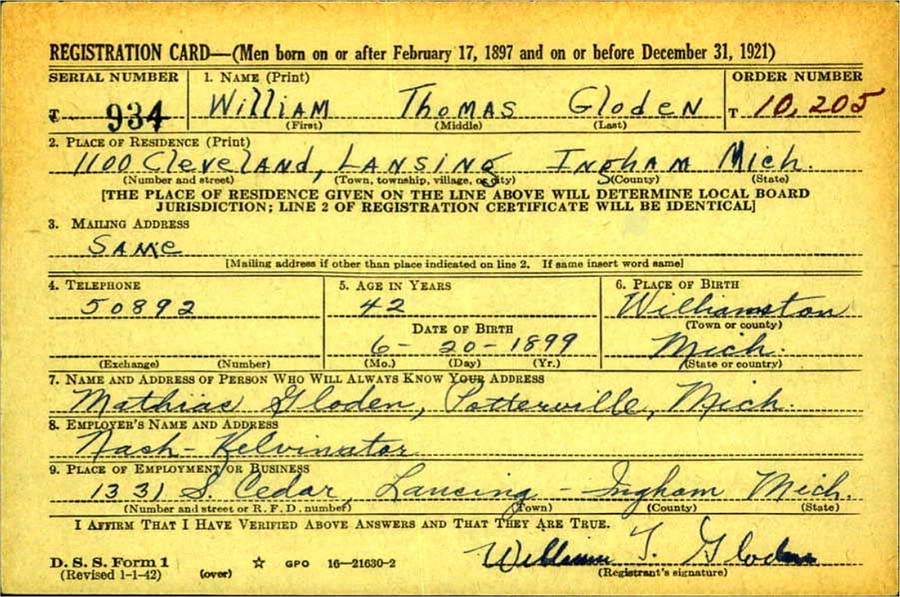 REGISTRATION CARD—(Men born on or after February 17, 1897 and on or before December 31, 1921)
SERIAL NUMBER 1. NAME (Print) ORDER NUMBER
T 934 William Thomas Gloden T 10,205
(First) (Middle) (Last)
2. PLACE OF RESIDENCE (Print)
1100 Cleveland, Lansing Ingham Mich.
(Number and street) (Town, township, village, or city) (County) (State)
[THE PLACE OF RESIDENCE GIVEN ON THE LINE ABOVE WILL DETERMINE LOCAL BOARD
JURISDICTION; LINE 2 OF REGISTRATION CERTIFICATE WILL BE IDENTICAL]
3. MAILING ADDRESS
Same
[Mailing address if other than place indicated on line 2. If same insert word same]
4. TELEPHONE 5. AGE IN YEARS 6. PLACE OF BIRTH
50892 42 Williamston
(Town or county)
DATE OF BIRTH
6- 20-1899 Mich.
(Exchange) (Number) (Mo.) (Day) (Yr.) (State or country)
7. NAME AND ADDRESS OF PERSON WHO WILL ALWAYS KNOW YOUR ADDRESS
Mathias Gloden, Potterville, Mich.
8. EMPLOYER'S NAME AND ADDRESS
Nash-Kelvinator
9. PLACE OF EMPLOYMENT OR BUSINESS
1331 S. Cedar, Lansing - Ingham Mich.
(Number and street or R. F. D. number) (Town) (County) (State)
I AFFIRM THAT I HAVE VERIFIED ABOVE ANSWERS AND THAT THEY ARE TRUE.
William T. Gloden
D. S. S. Form 1
(Revised 1-1-42) (over) ☆ GPO 16—21630-2 (Registrant's signature)